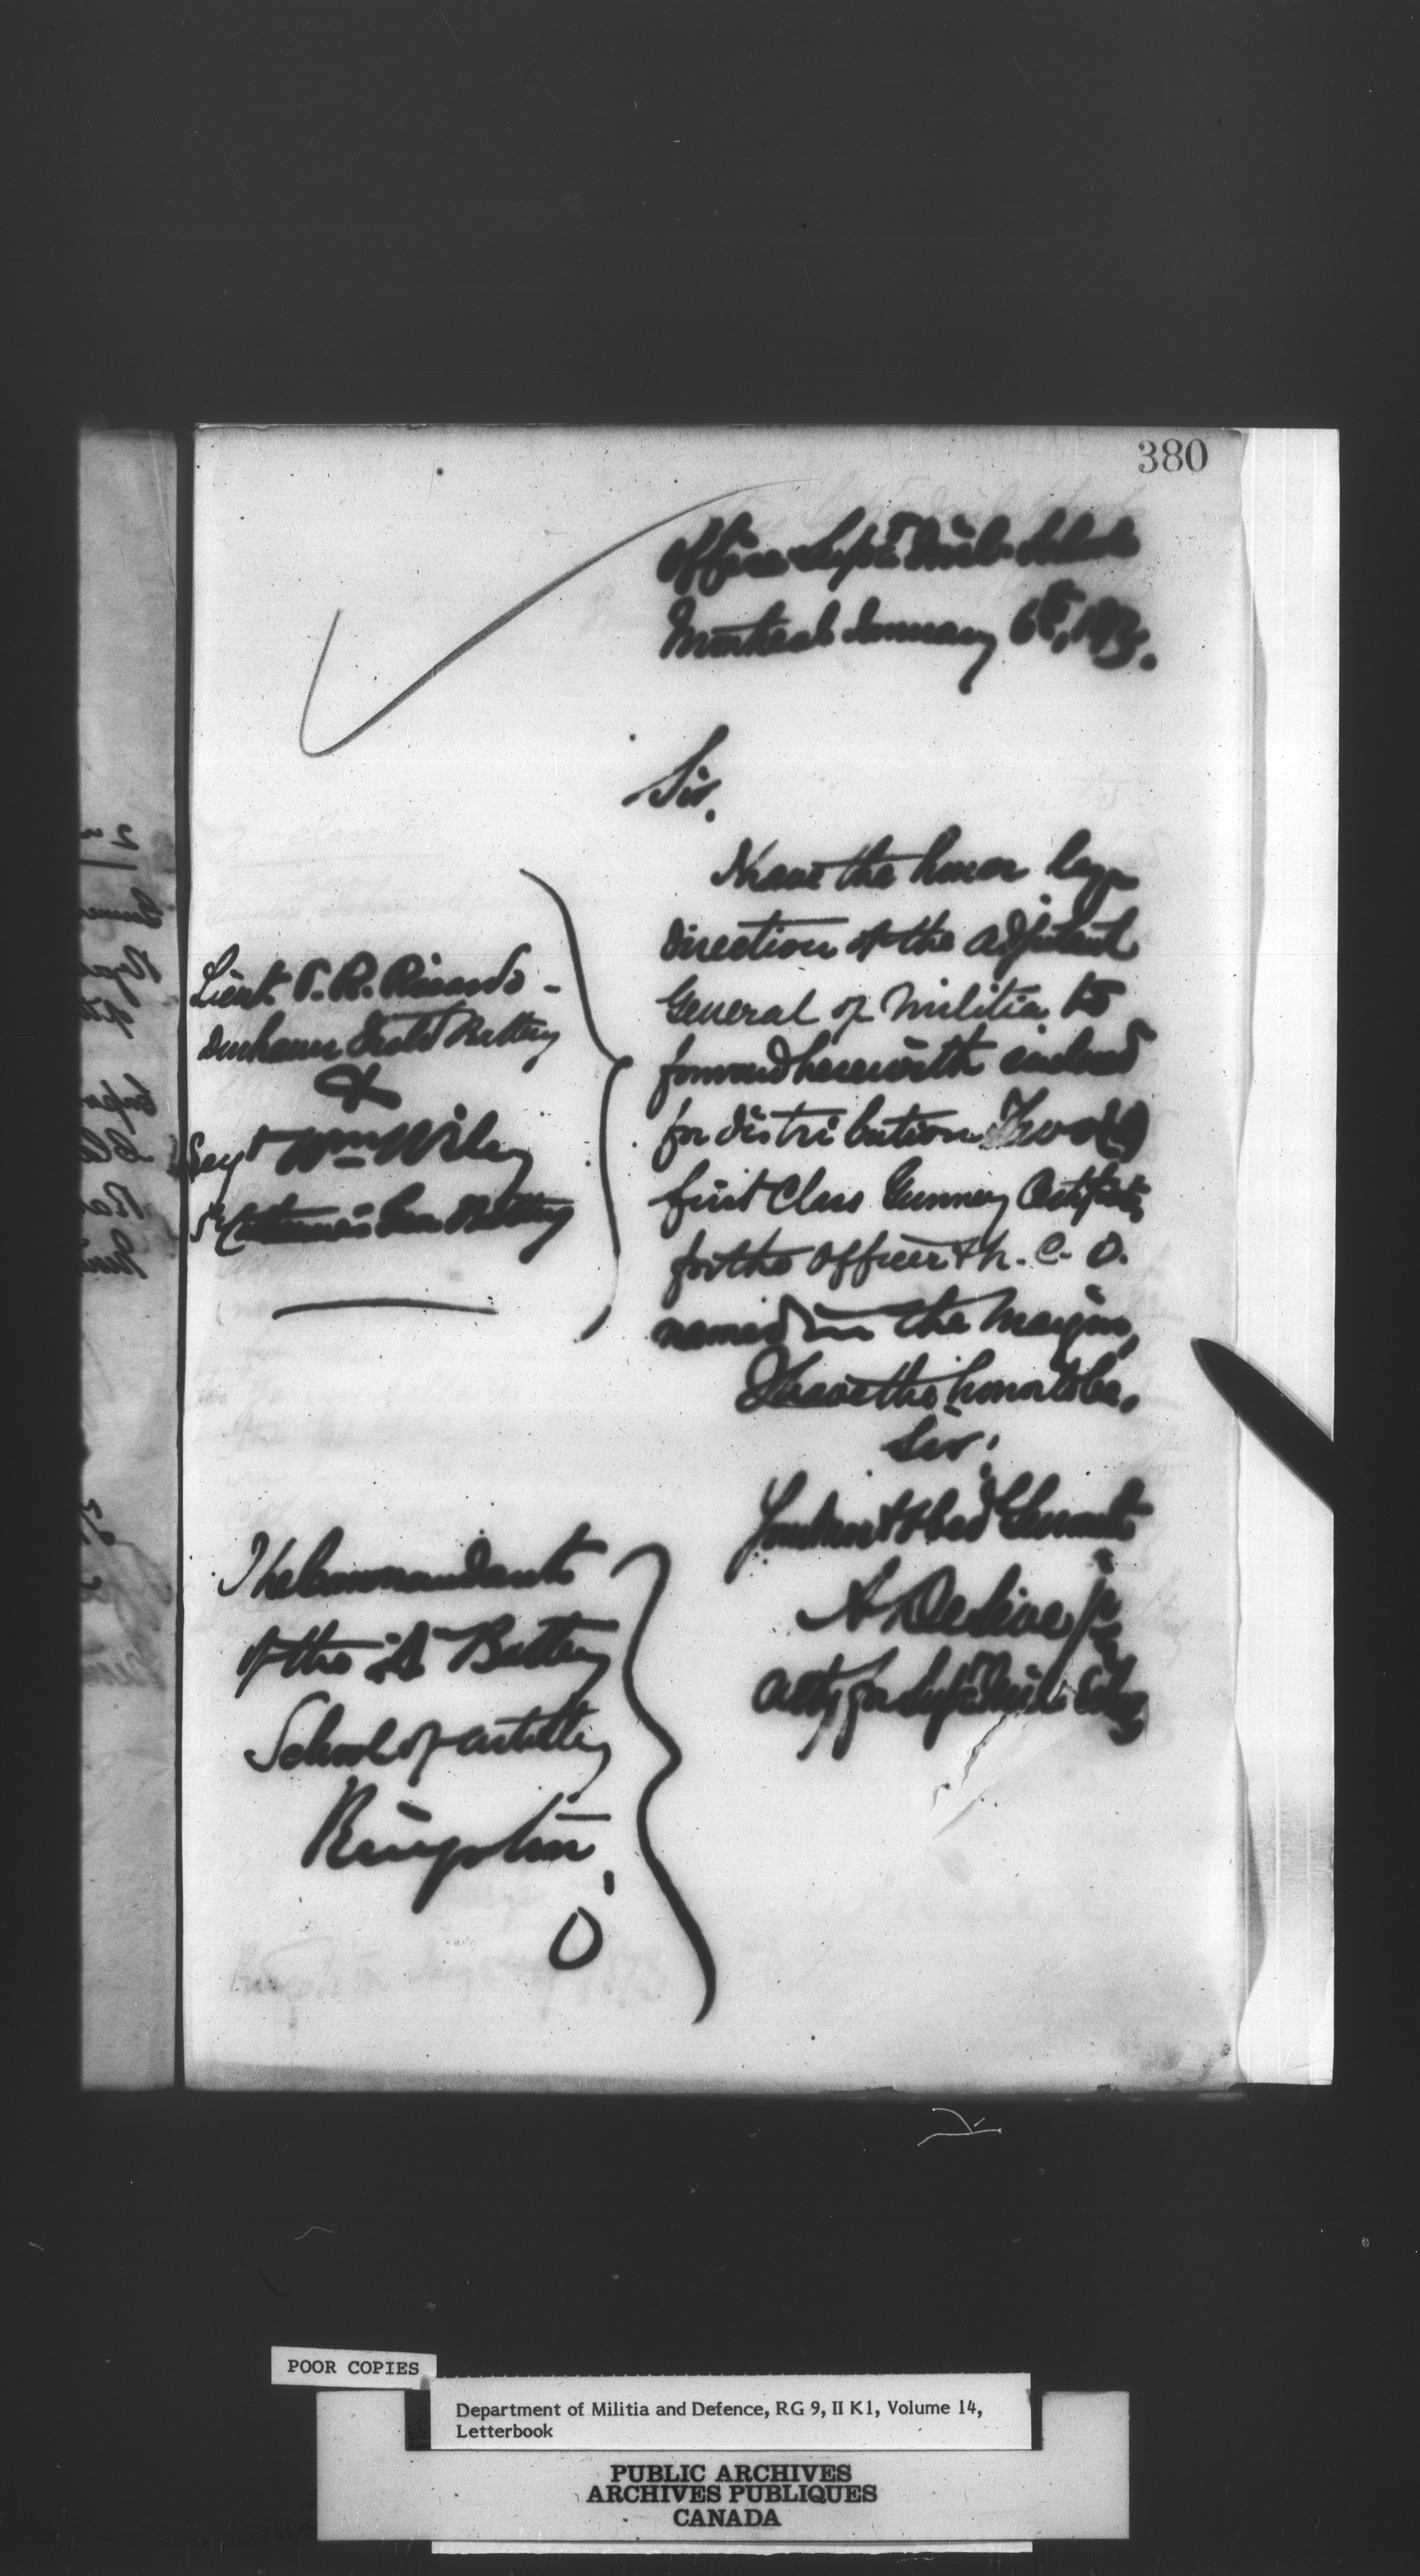 380
Office Supt Mil. Schools
Montreal January 6th, 187
Sir,
I have the honor by
direction of the Adjutant
General of Militia to
forward herewith enclosed
for distribution Two (2)
first Class Gunnery Certificates
for the Officer & N. C. O.
named in the Margin,
I have the honor to be,
Sir,
Your most Obed Servant
A. Jr
Actg for Supt Mil. Schs
Lieut. P. R. Ricardo -
Durham Field Battery
&
Sergt Wm Wiley
St Catharines Battery
The Commandant
of the "A" Battery
School of Artillery
Kingston,
O
POOR COPIES
Department of Militia and Defence, RG 9, II K1, Volume 14,
Letterbook
PUBLIC ARCHIVES
ARCHIVES PUBLIQUES
CANADA